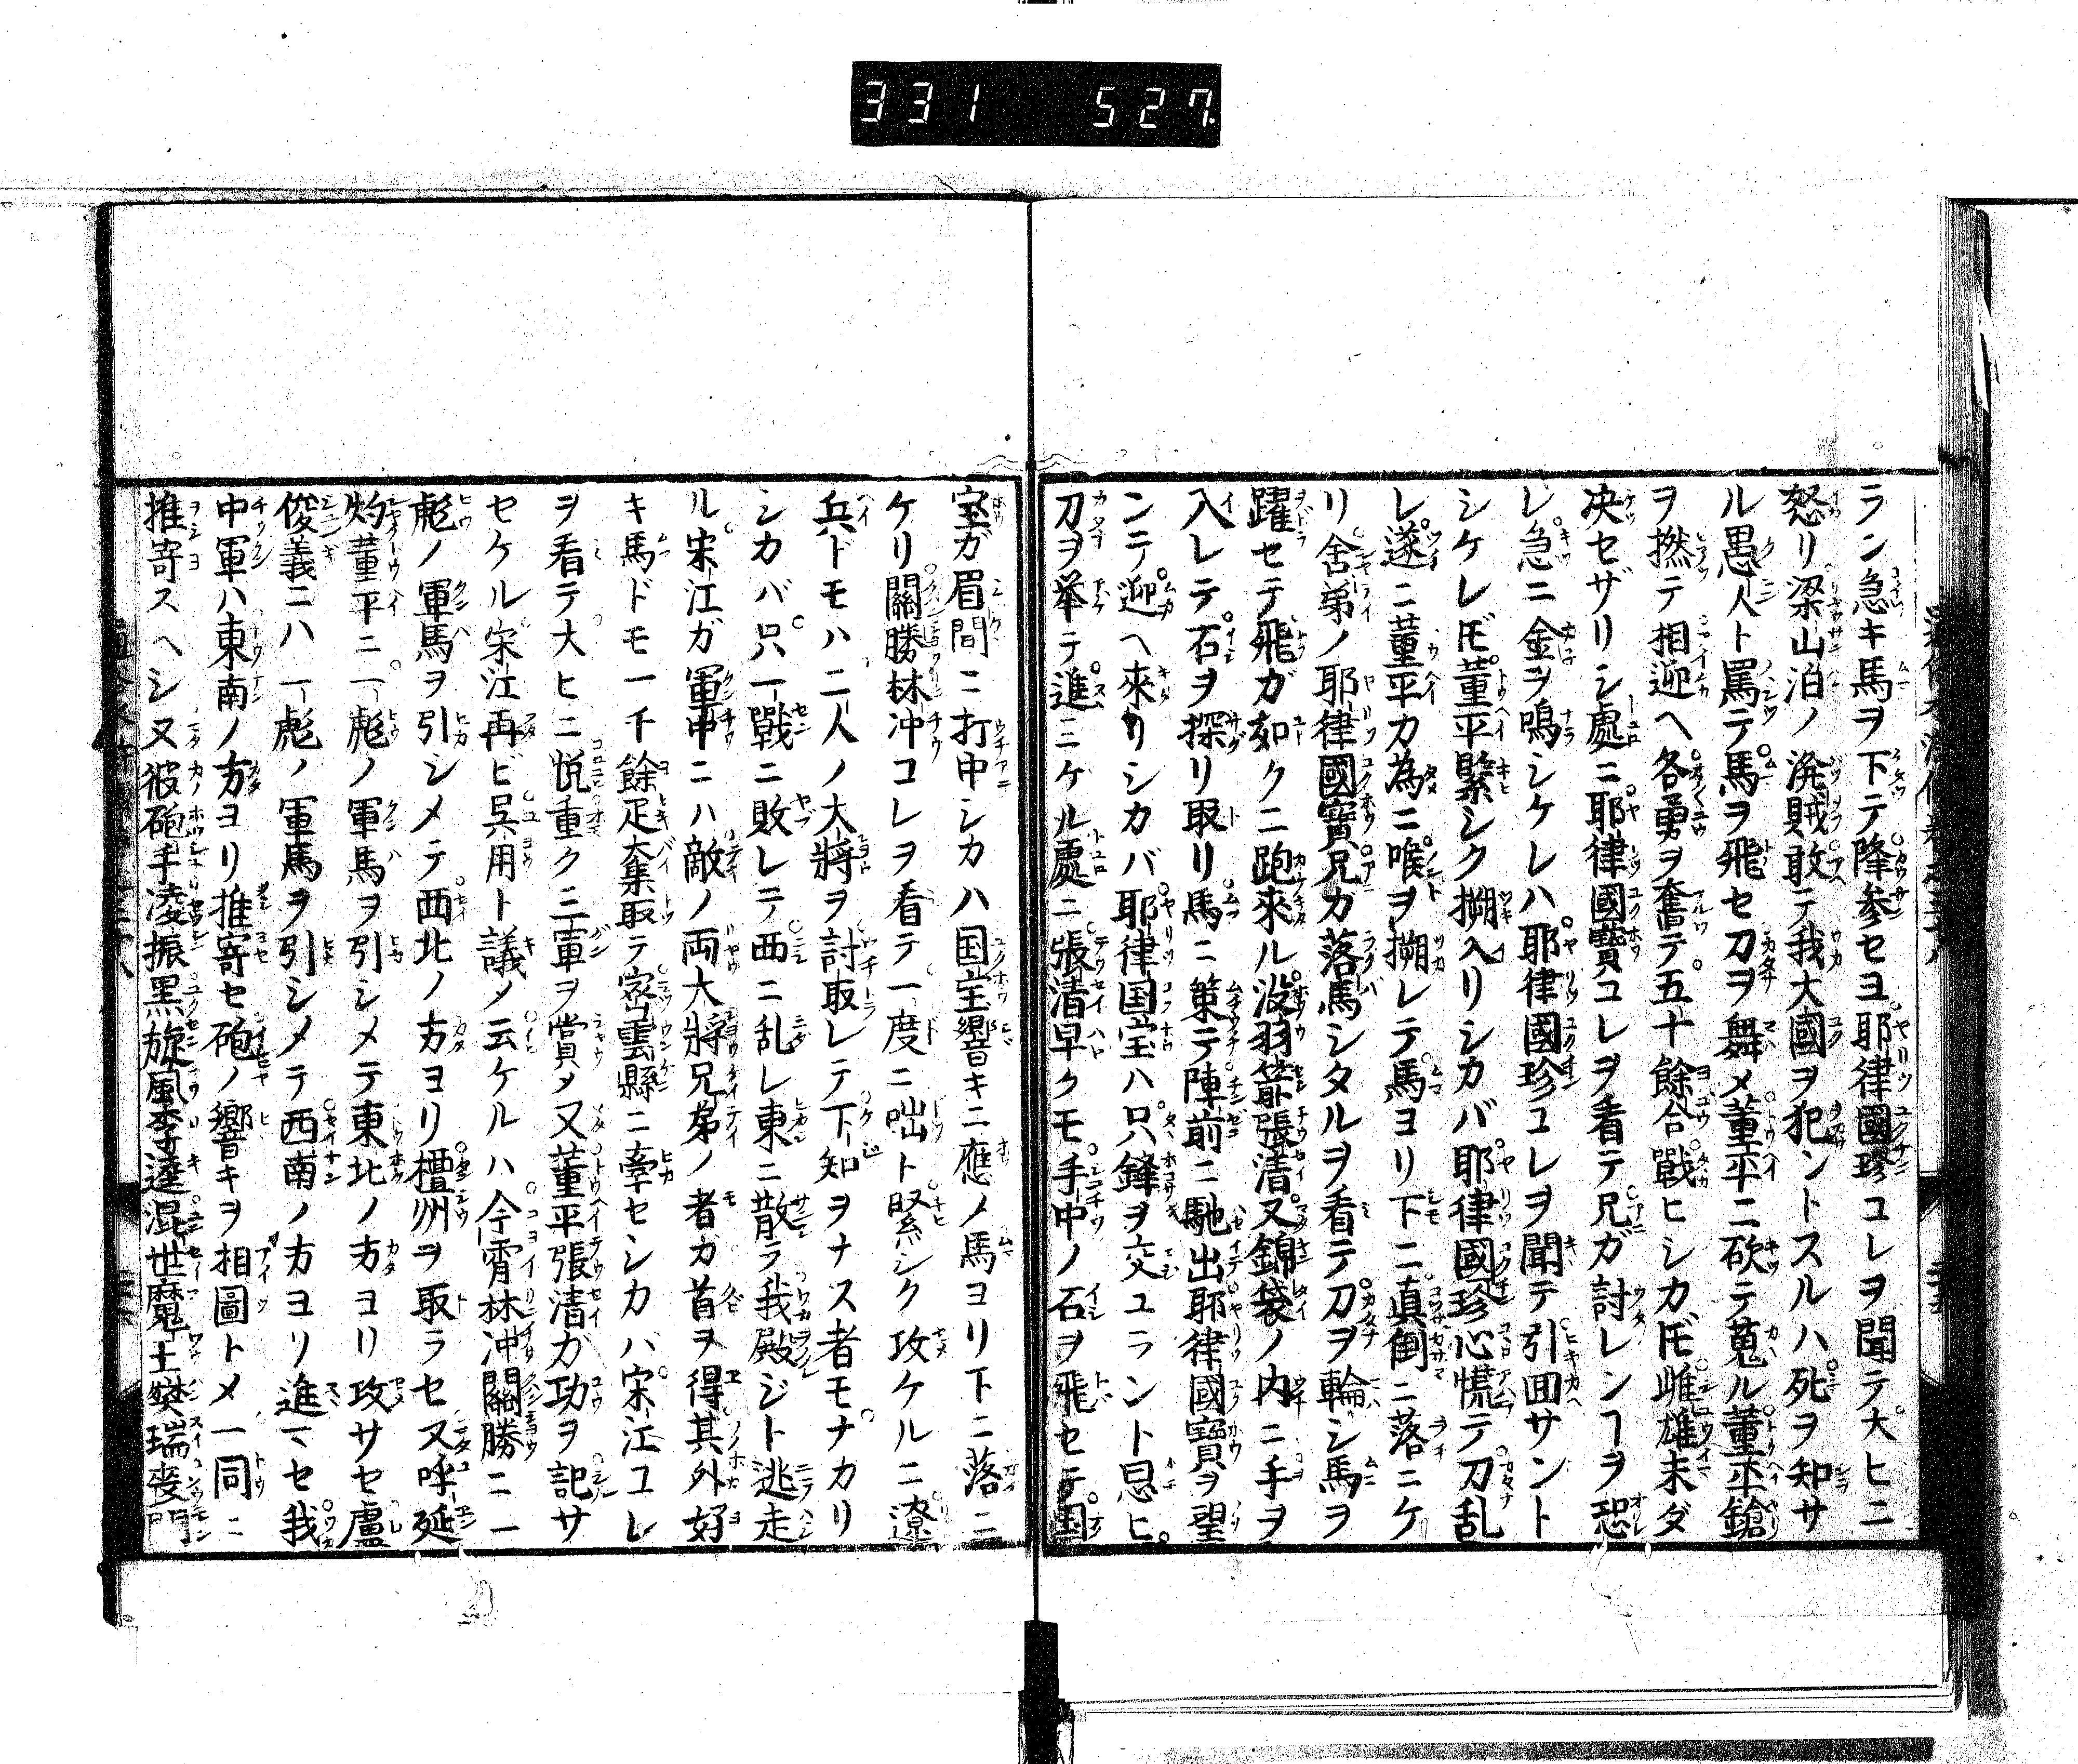 331 527
ラン急キ馬ヲ下テ降参セヨ耶律國珍コレヲ聞テ大ヒニ
怒リ梁山泊ノ溌賊敢テ我大國ヲ犯ントスルハ死ヲ知サ
ル愚人ト罵テ馬ヲ飛セ刀ヲ舞メ董平ニ砍テ蒐ル董平鎗
ヲ撚テ相迎ヘ各勇ヲ奮テ五十餘合戰ヒシカ𪜈雌雄未ダ
决セザリシ處ニ耶律國寶コレヲ看テ兄ガ討レンヿヲ恐
レ急ニ金ヲ鳴シケレハ耶律國珍コレヲ聞テ引囬サント
シケレ𪜈董平緊シク搠入リシカバ耶律國珍心慌テ刀乱
レ遂ニ董平カ為ニ喉ヲ搠レテ馬ヨリ下ニ真倒ニ落ニケ
リ舍弟ノ耶律國寶兄カ落馬シタルヲ看テ刀ヲ輪シ馬ヲ
躍セテ飛ガ如クニ跑來ル没羽箭張清又錦袋ノ内ニ手ヲ
入レテ石ヲ探リ取リ馬ニ策テ陣前ニ馳出耶律國寶ヲ望
ンテ迎ヘ來リシカバ耶律国宝ハ只鋒ヲ交ユラント思ヒ
刀ヲ挙テ進ニケル處ニ張清早クモ手中ノ石ヲ飛セテ国
宝ガ眉間ニ打中シカハ国宝響キニ應ノ馬ヨリ下ニ落ニ
ケリ關勝林冲コレヲ看テ一度ニ咄ト緊シク攻ケルニ遼
兵ドモハ二人ノ大將ヲ討取レテ下知ヲナス者モナカリ
シカバ只一戰ニ敗レテ西ニ乱レ東ニ散ラ我殿ジト逃走
ル宋江ガ軍中ニハ敵ノ両大將兄弟ノ者カ首ヲ得其外好
キ馬ドモ一千餘疋奪取テ密雲縣ニ牽セシカバ宋江コレ
ヲ看テ大ヒニ悦重ク三軍ヲ賞メ又董平張清ガ功ヲ記サ
セケル宋江再ビ呉用ト議ノ云ケルハ今宵林冲關勝ニ一
彪ノ軍馬ヲ引シメテ西北ノ方ヨリ檀州ヲ取ラセ又呼延
灼董平ニ一彪ノ軍馬ヲ引シメテ東北ノ方ヨリ攻サセ盧
俊義ニハ一彪ノ軍馬ヲ引シメテ西南ノ方ヨリ進マセ我
中軍ハ東南ノ方ヨリ推寄セ砲ノ響キヲ相圖トメ一同ニ
推寄スヘシ又彼砲手凌振黑旋風李逵混世魔王樊瑞喪門